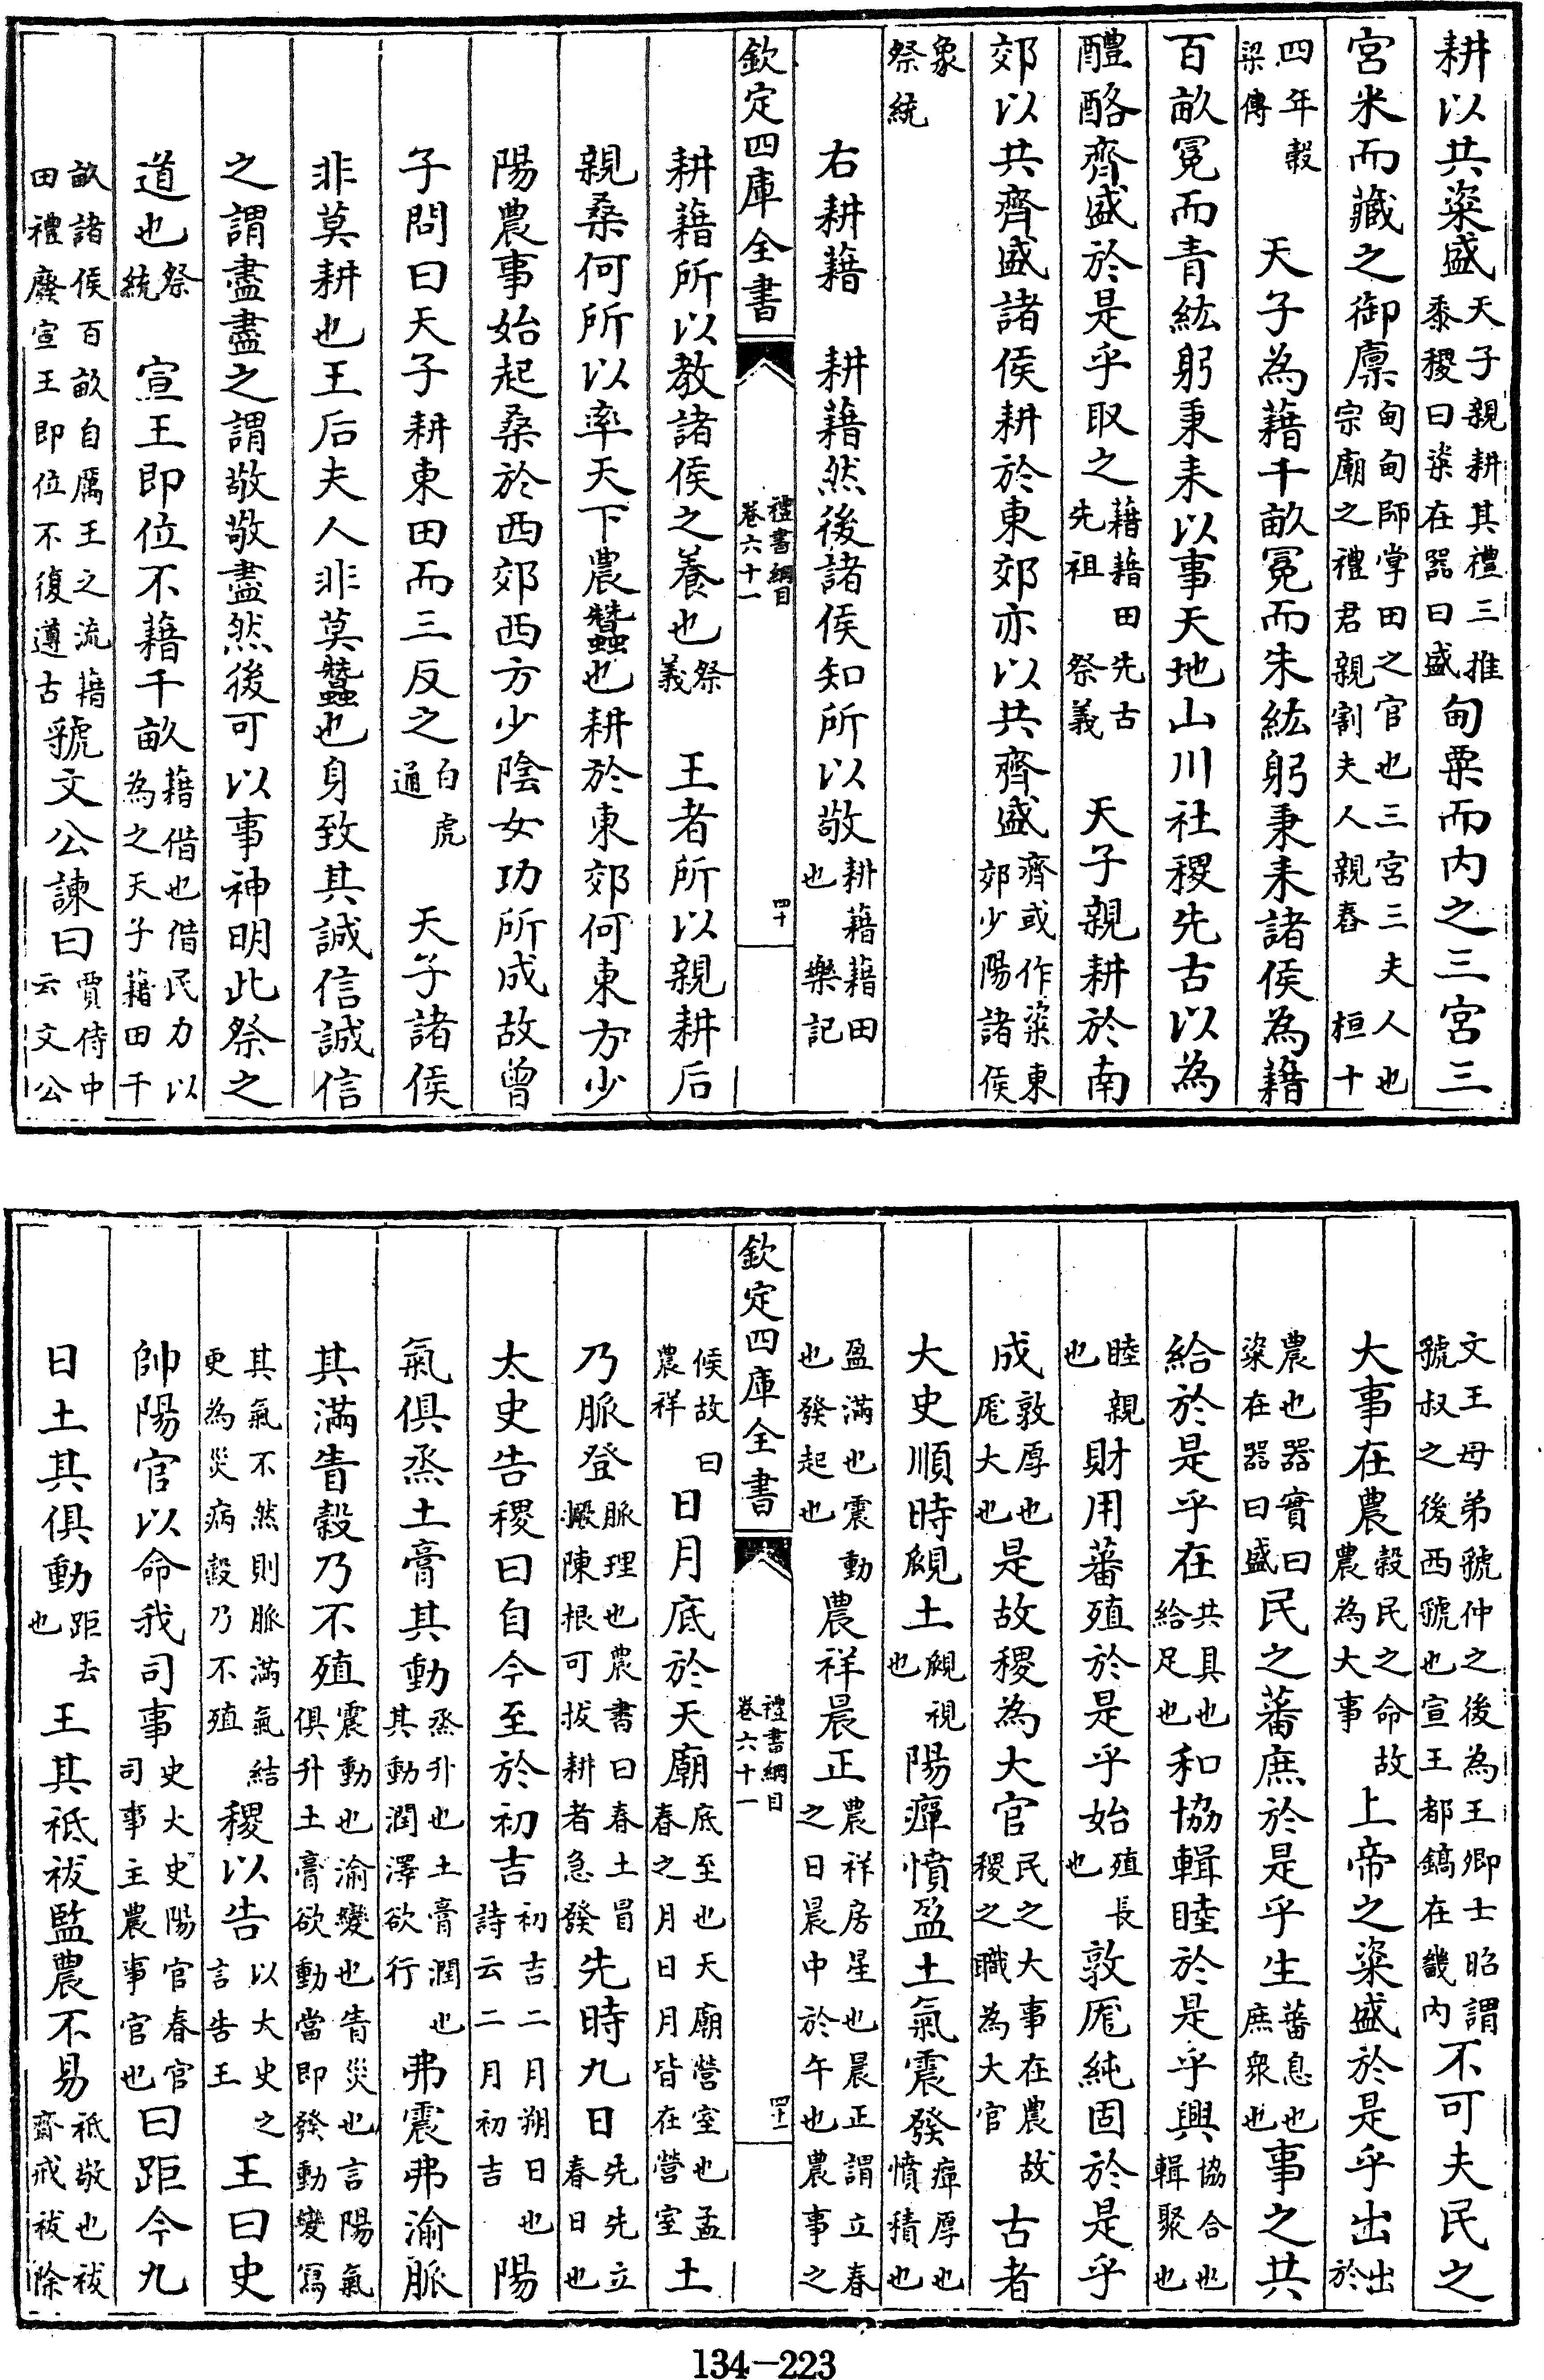 耕以共粢盛天子親耕其禮三推黍稷曰粢在器曰盛甸粟而内之三宮三
宮米而藏之御廪甸甸師掌田之官也三宮三夫人也宗廟之禮君親割夫人親舂桓十
四年榖梁傳天子為藉千畝冕而朱紘躬秉耒諸侯為藉
百畝冕而青紘躬秉耒以事天地山川社稷先古以為
醴酪齊盛於是乎取之藉藉田先古先祖祭義天子親耕於南
郊以共齊盛諸侯耕於東郊亦以共齊盛齊或作粢東郊少陽諸侯
象祭統
右耕藉耕藉然後諸侯知所以敬耕藉藉田也樂記
欽定四庫全書
禮書綱目卷六十一
四十
耕藉所以教諸侯之養也祭義王者所以親耕后
親桑何所以率天下農蠶也耕於東郊何東方少
陽農事始起桑於西郊西方少陰女功所成故曽
子問曰天子耕東田而三反之白虎通天子諸侯
非莫耕也王后夫人非莫蠶也身致其誠信誠信
之謂盡盡之謂敬敬盡然後可以事神明此祭之
道也祭統宣王即位不藉千畝藉借也借民力以為之天子藉田千
畝諸侯百畝自厲王之流藉田禮廢宣王即位不復遵古虢文公諫曰賈侍中云文公
文王母弟虢仲之後為王卿士昭謂虢叔之後西虢也宣王都鎬在畿内不可夫民之
大事在農榖民之命故農為大事上帝之粢盛於是乎出出於
農也器實曰粢在器曰盛民之蕃庶於是乎生蕃息也庶衆也事之共
給於是乎在共具也給足也和協輯睦於是乎興協合也輯聚也
睦親也財用蕃殖於是乎始殖長也敦厖純固於是乎
成敦厚也厖大也是故稷為大官民之大事在農故稷之職為大官古者
大史順時覛土覛視也陽癉憤盈土氣震發癉厚也憤積也
盈滿也震動也發起也農祥晨正農祥房星也晨正謂立春之日晨中於午也農事之
欽定四庫全書
禮書綱目卷六十一
四十一
候故曰農祥日月底於天廟底至也天廟營室也孟春之月日月皆在營室土
乃脈登脈理也農書曰春土冒橛陳根可拔耕者急發先時九日先先立春日也
太史告稷曰自今至於初吉初吉二月朔日也詩云二月初吉陽
氣俱烝土膏其動烝升也土膏潤也其動潤澤欲行弗震弗渝脈
其滿眚榖乃不殖震動也渝變也眚災也言陽氣俱升土膏欲動當即發動變寫
其氣不然則脈滿氣結更為災病榖乃不殖稷以告以大史之言告王王曰史
帥陽官以命我司事史大史陽官春官司事主農事官也曰距今九
日土其俱動距去也王其祗祓監農不易祗敬也祓齋戒祓除
134-223